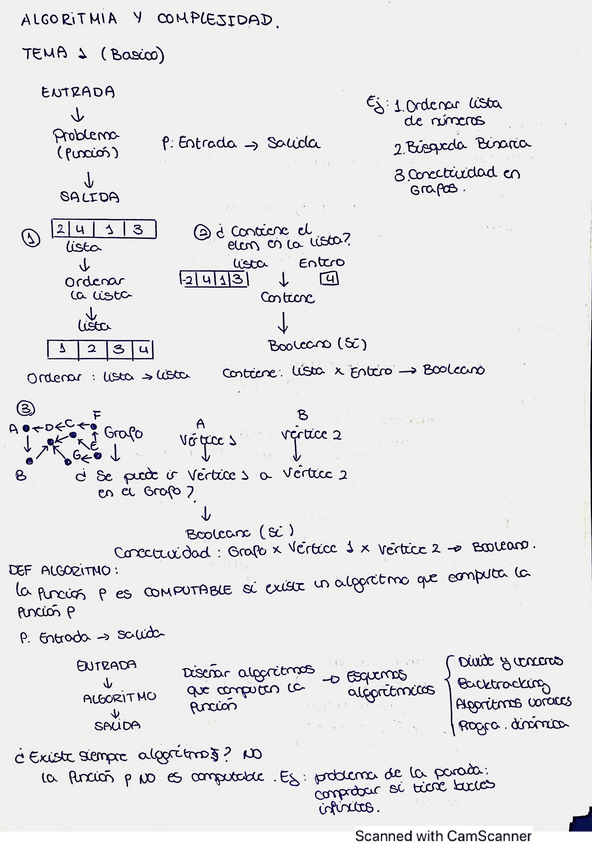 ALGORITMIA Y COMPLEJIDAD.
TEMA 1 (Basico)
ENTRADA
Problema
(función)
SALIDA
f: Entrada → Salida
Ej: 1. Ordenar lista
de números
2. Búsqueda Binaria
3. Conectividad en
Grafos.
1
2 4 1 3
lista
Ordenar
la lista
lista
1 2 3 4
Ordenar : lista → lista
2 ¿ Contiene el
elem en la lista?
lista Entero
2 4 1 3 4
Contiene
Booleano (Sí)
Contiene: lista x Entero → Booleano
3
A D C F
E
G
B
Grafo
A
Vértice 1
B
Vértice 2
¿ Se puede ir Vértice 1 a Vértice 2
en el Grafo ?
Booleano (Sí)
Conectividad : Grafo x Vértice 1 x Vértice 2 → Booleano.
DEF ALGORITMO :
la función f es COMPUTABLE si existe un algoritmo que computa la
función f
f: Entrada → salida
ENTRADA
ALGORITMO
SALIDA
Diseñar algoritmos
que computen la
función
→ Esquemas
algorítmicos
Divide y vencerás
Backtracking
Algoritmos voraces
Progra. dinámica
¿ Existe siempre algoritmo ? NO
la función f NO es computable. Ej: problema de la parada:
comprobar si tiene bucles
infinitos.
Scanned with CamScanner